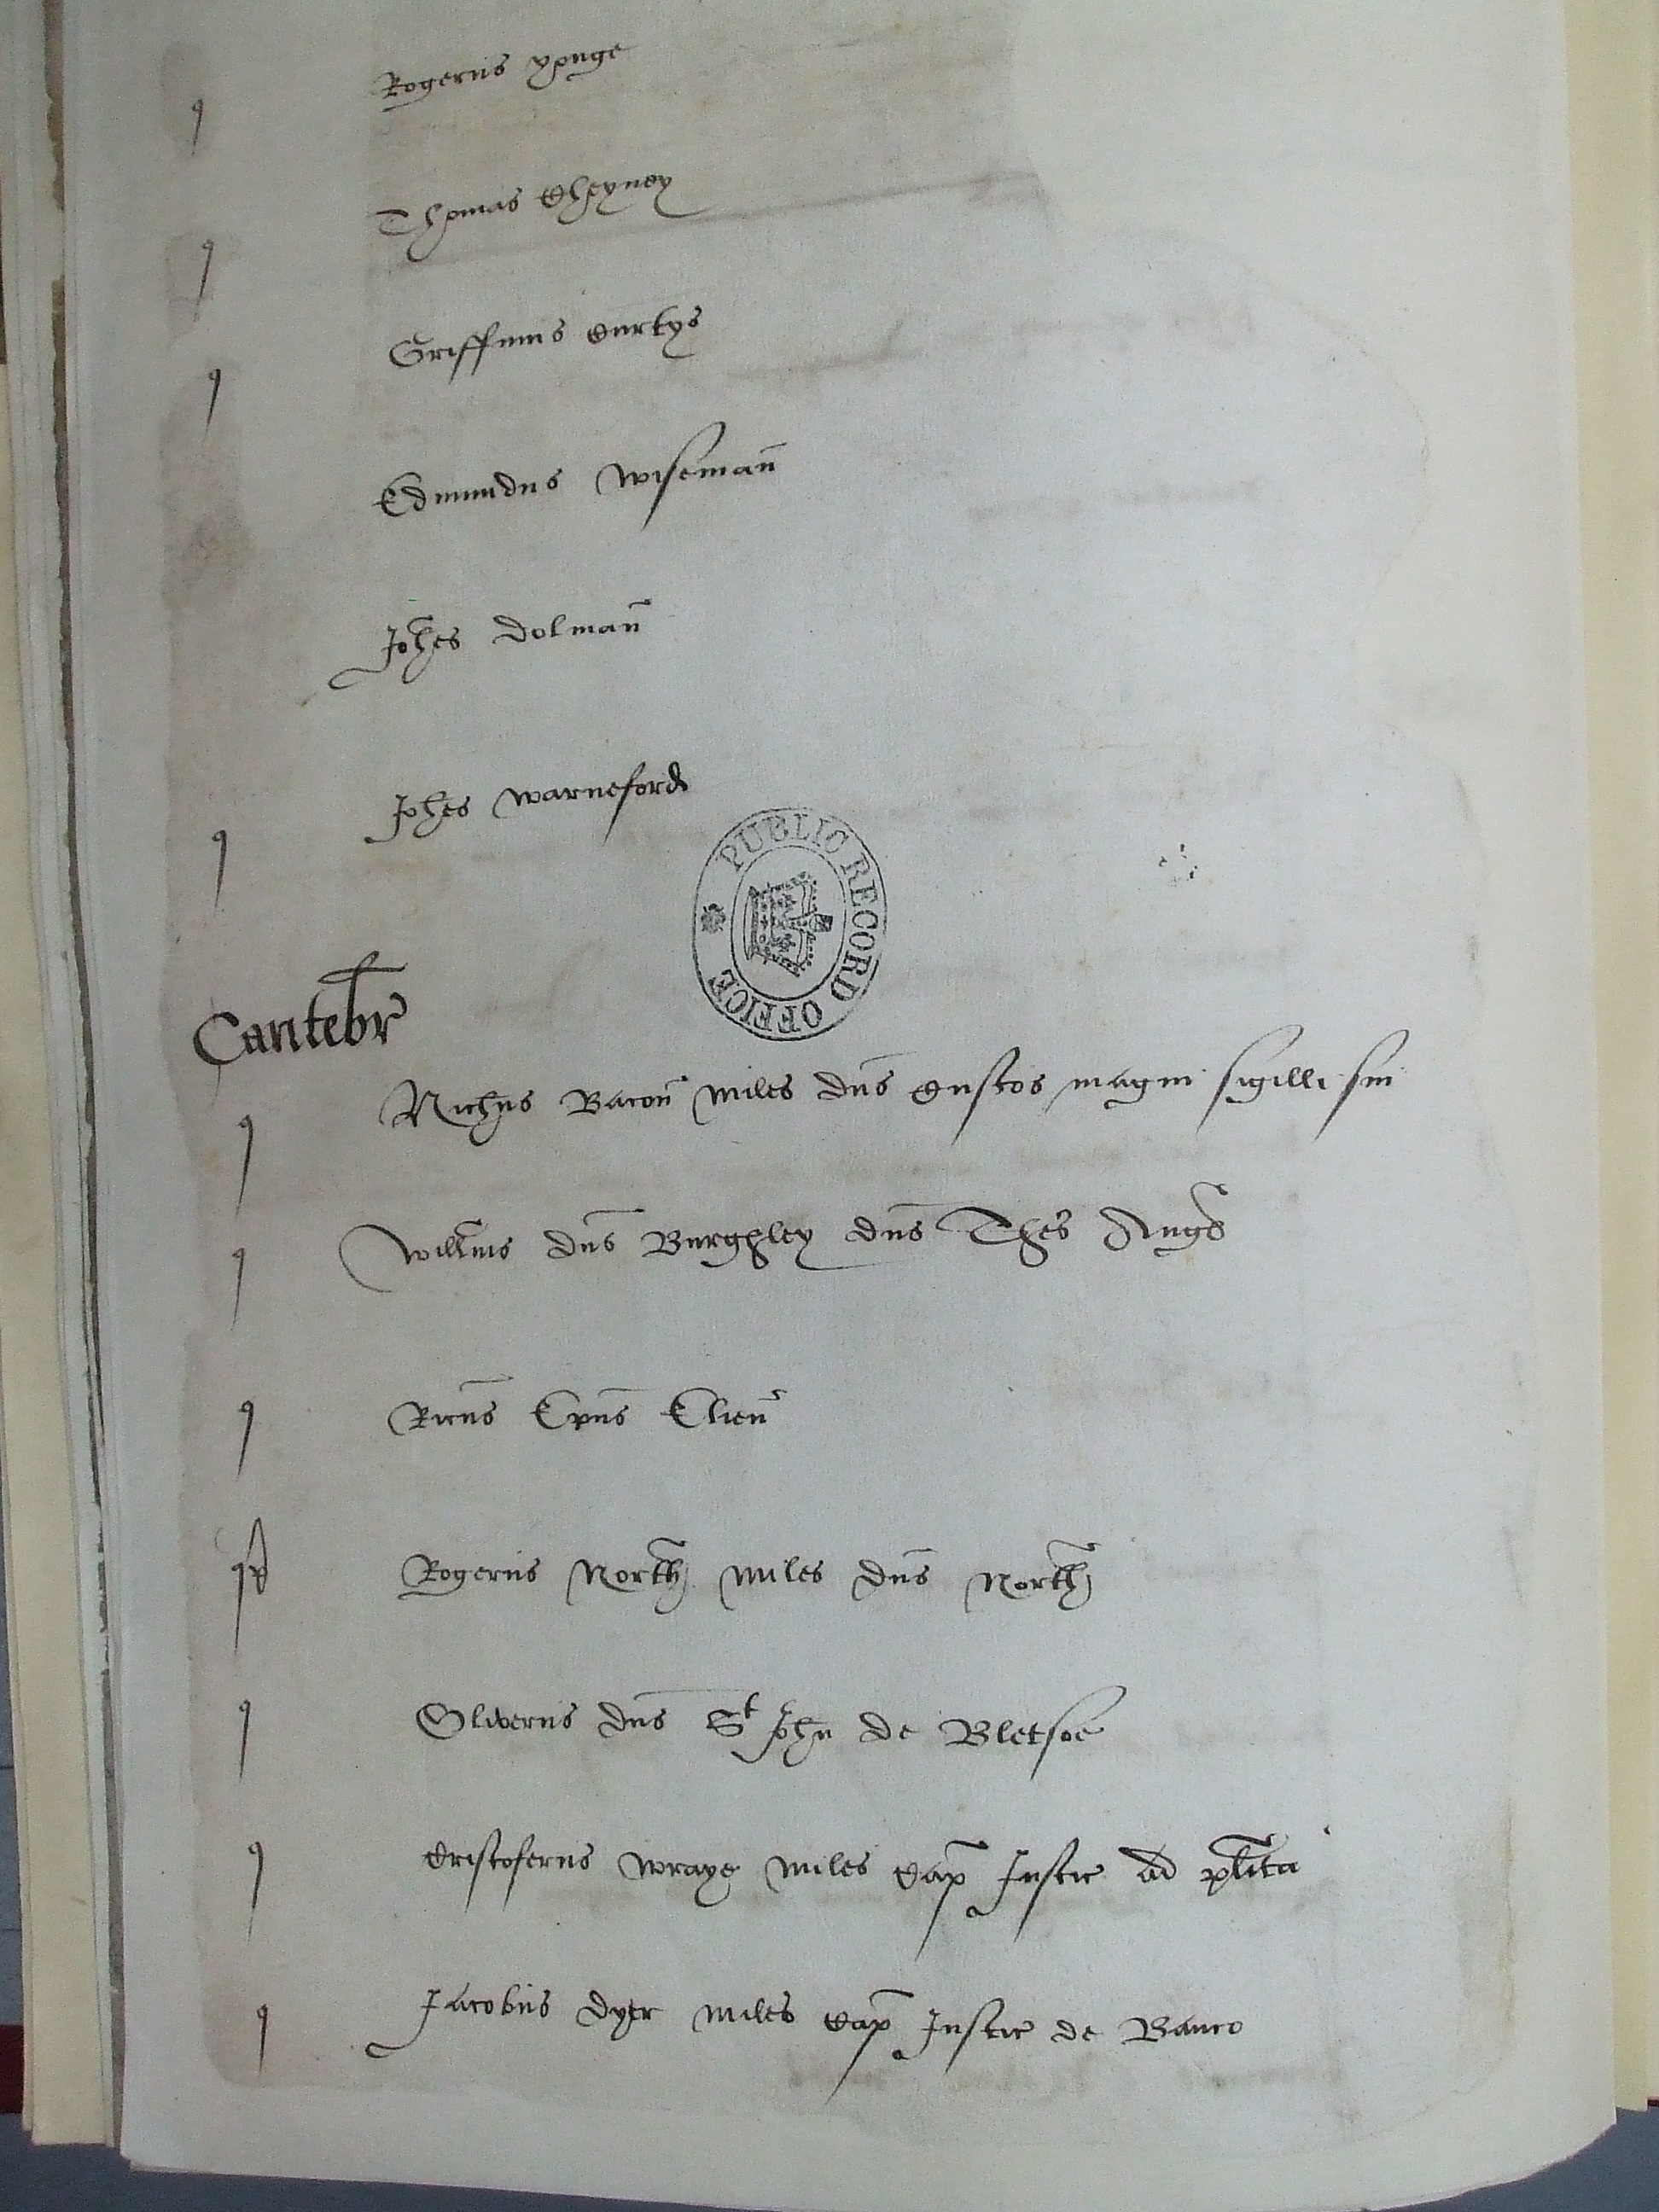 q Rogerus yonge
q Thomas Cheyney
q Griffinus Curtys
Edmundus Wisemañ
Joħes Dolmañ
q Joħes Warneford
PUBLIC RECORD OFFICE
Cantebr
q Nichus Bacoñ miles dns Custos magni sigilli sui
q Willms dns Burghley dns Thes Angl
q Ricus Epus Elien
Rogerus North miles dns North
q Oliverus dns St John de Bletsoe
q Cristoferus Wraye miles Cap Justic ad plita
q Jacobus Dyer miles Cap Justic de Banco